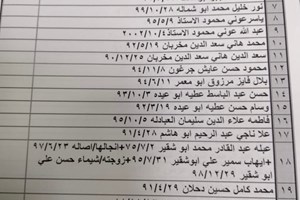 نور خليل محمد ابو شماله ٩٩/١٠/٢٨ ٧
ياسر عوني محمود الاستاذ ٩٥/٥/٩ ٨
عبد الله عوني محمود الاستاذ ٢٠٠٢/١٠/٤ ٩
محمد هاني سعد الدين مخربان ٩٢/٥/١٩ ١٠
سعد الدين هاني سعد الدين مخربان ٩٠/١٢/٢٥ ١١
محمود حسن عايش جرغون ٩٤/١١/٨ ١٢
بلال فايز مرزوق ابو معمر ٩٤/٦/١١ ١٣
حسن عبد الباسط عطيه ابو عيده ٩٣/١٠/٣ ١٤
وسام حسن عطيه ابو عيده ٩٢/٣/١٩ ١٥
فاطمه علاء الدين سليمان العبادله ٩٥/١٠/٥ ١٦
علا ناجي عبد الرحيم ابو هاشم ٩١/٤/٢٨ ١٧
عبله عبد القادر محمد ابو شقير ٧٥/٧/٢+انجالها/اصاله ٩٧/٦/٢٣
+ايهاب سمير علي ابوشقير ٩٥/٧/٣١+زوجته/شيماء حسن علي ١٨
ابو شقير ٩٨/١٢/٢٩
محمد كامل حسين دحلان ٩١/٤/٢٩ ١٩